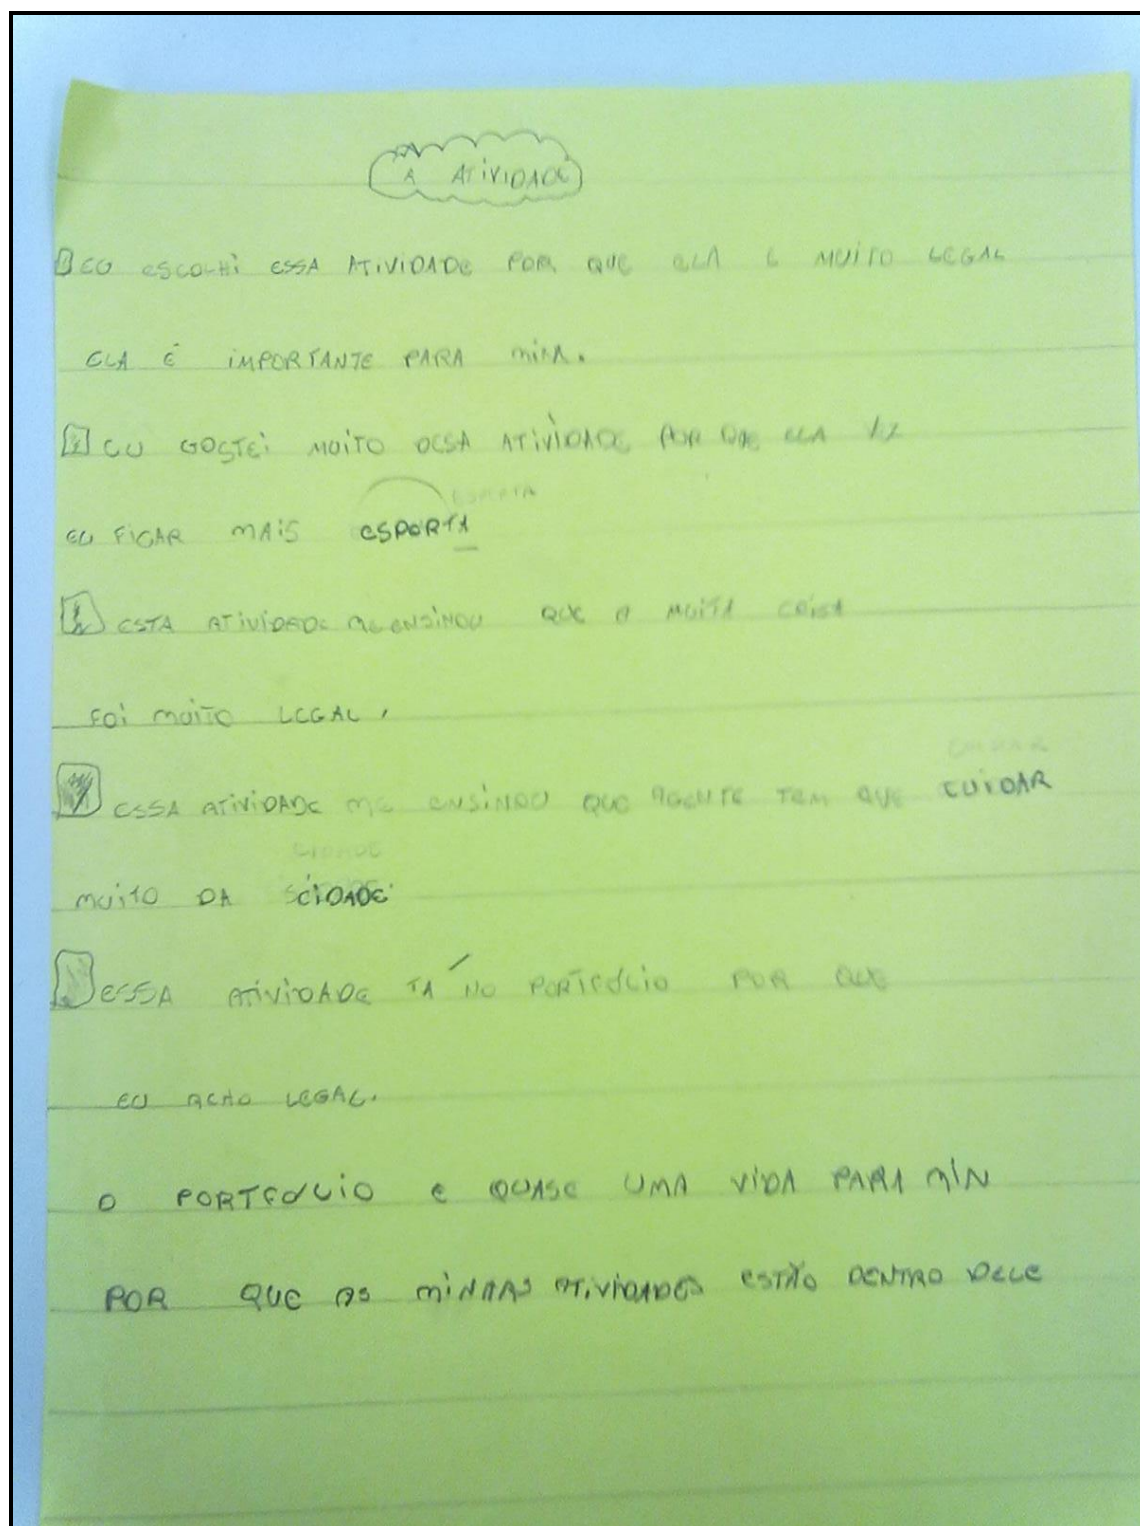 A ATIVIDADE
EU ESCOLHI ESSA ATIVIDADE POR QUE ELA E MUITO LEGAL
ELA É IMPORTANTE PARA MIM.
EU GOSTEI MUITO DESA ATIVIDADE POR QUE ELA
EU FICAR MAIS ESPORTA
ESTA ATIVIDADE ME ENSINOU QUE A MUITA COISA
FOI MUITO LEGAL,
CUIDAR
ESSA ATIVIDADE ME ENSINOU QUE AGENTE TEM QUE CUIDAR
CIDADE
MUITO DA CIDADE
ESSA ATIVIDADE TÁ NO PORTFÓLIO POR QUE
EU ACHO LEGAL.
O PORTFÓLIO E QUASE UMA VIDA PARA MIN
POR QUE AS MINHAS ATIVIDADES ESTÃO DENTRO DELE